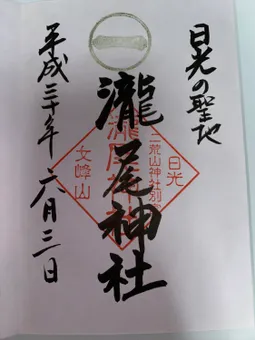 日光の聖地
瀧尾神社
平成三十年六月三日
日光
二荒山神社別宮
瀧尾神社
女峰山